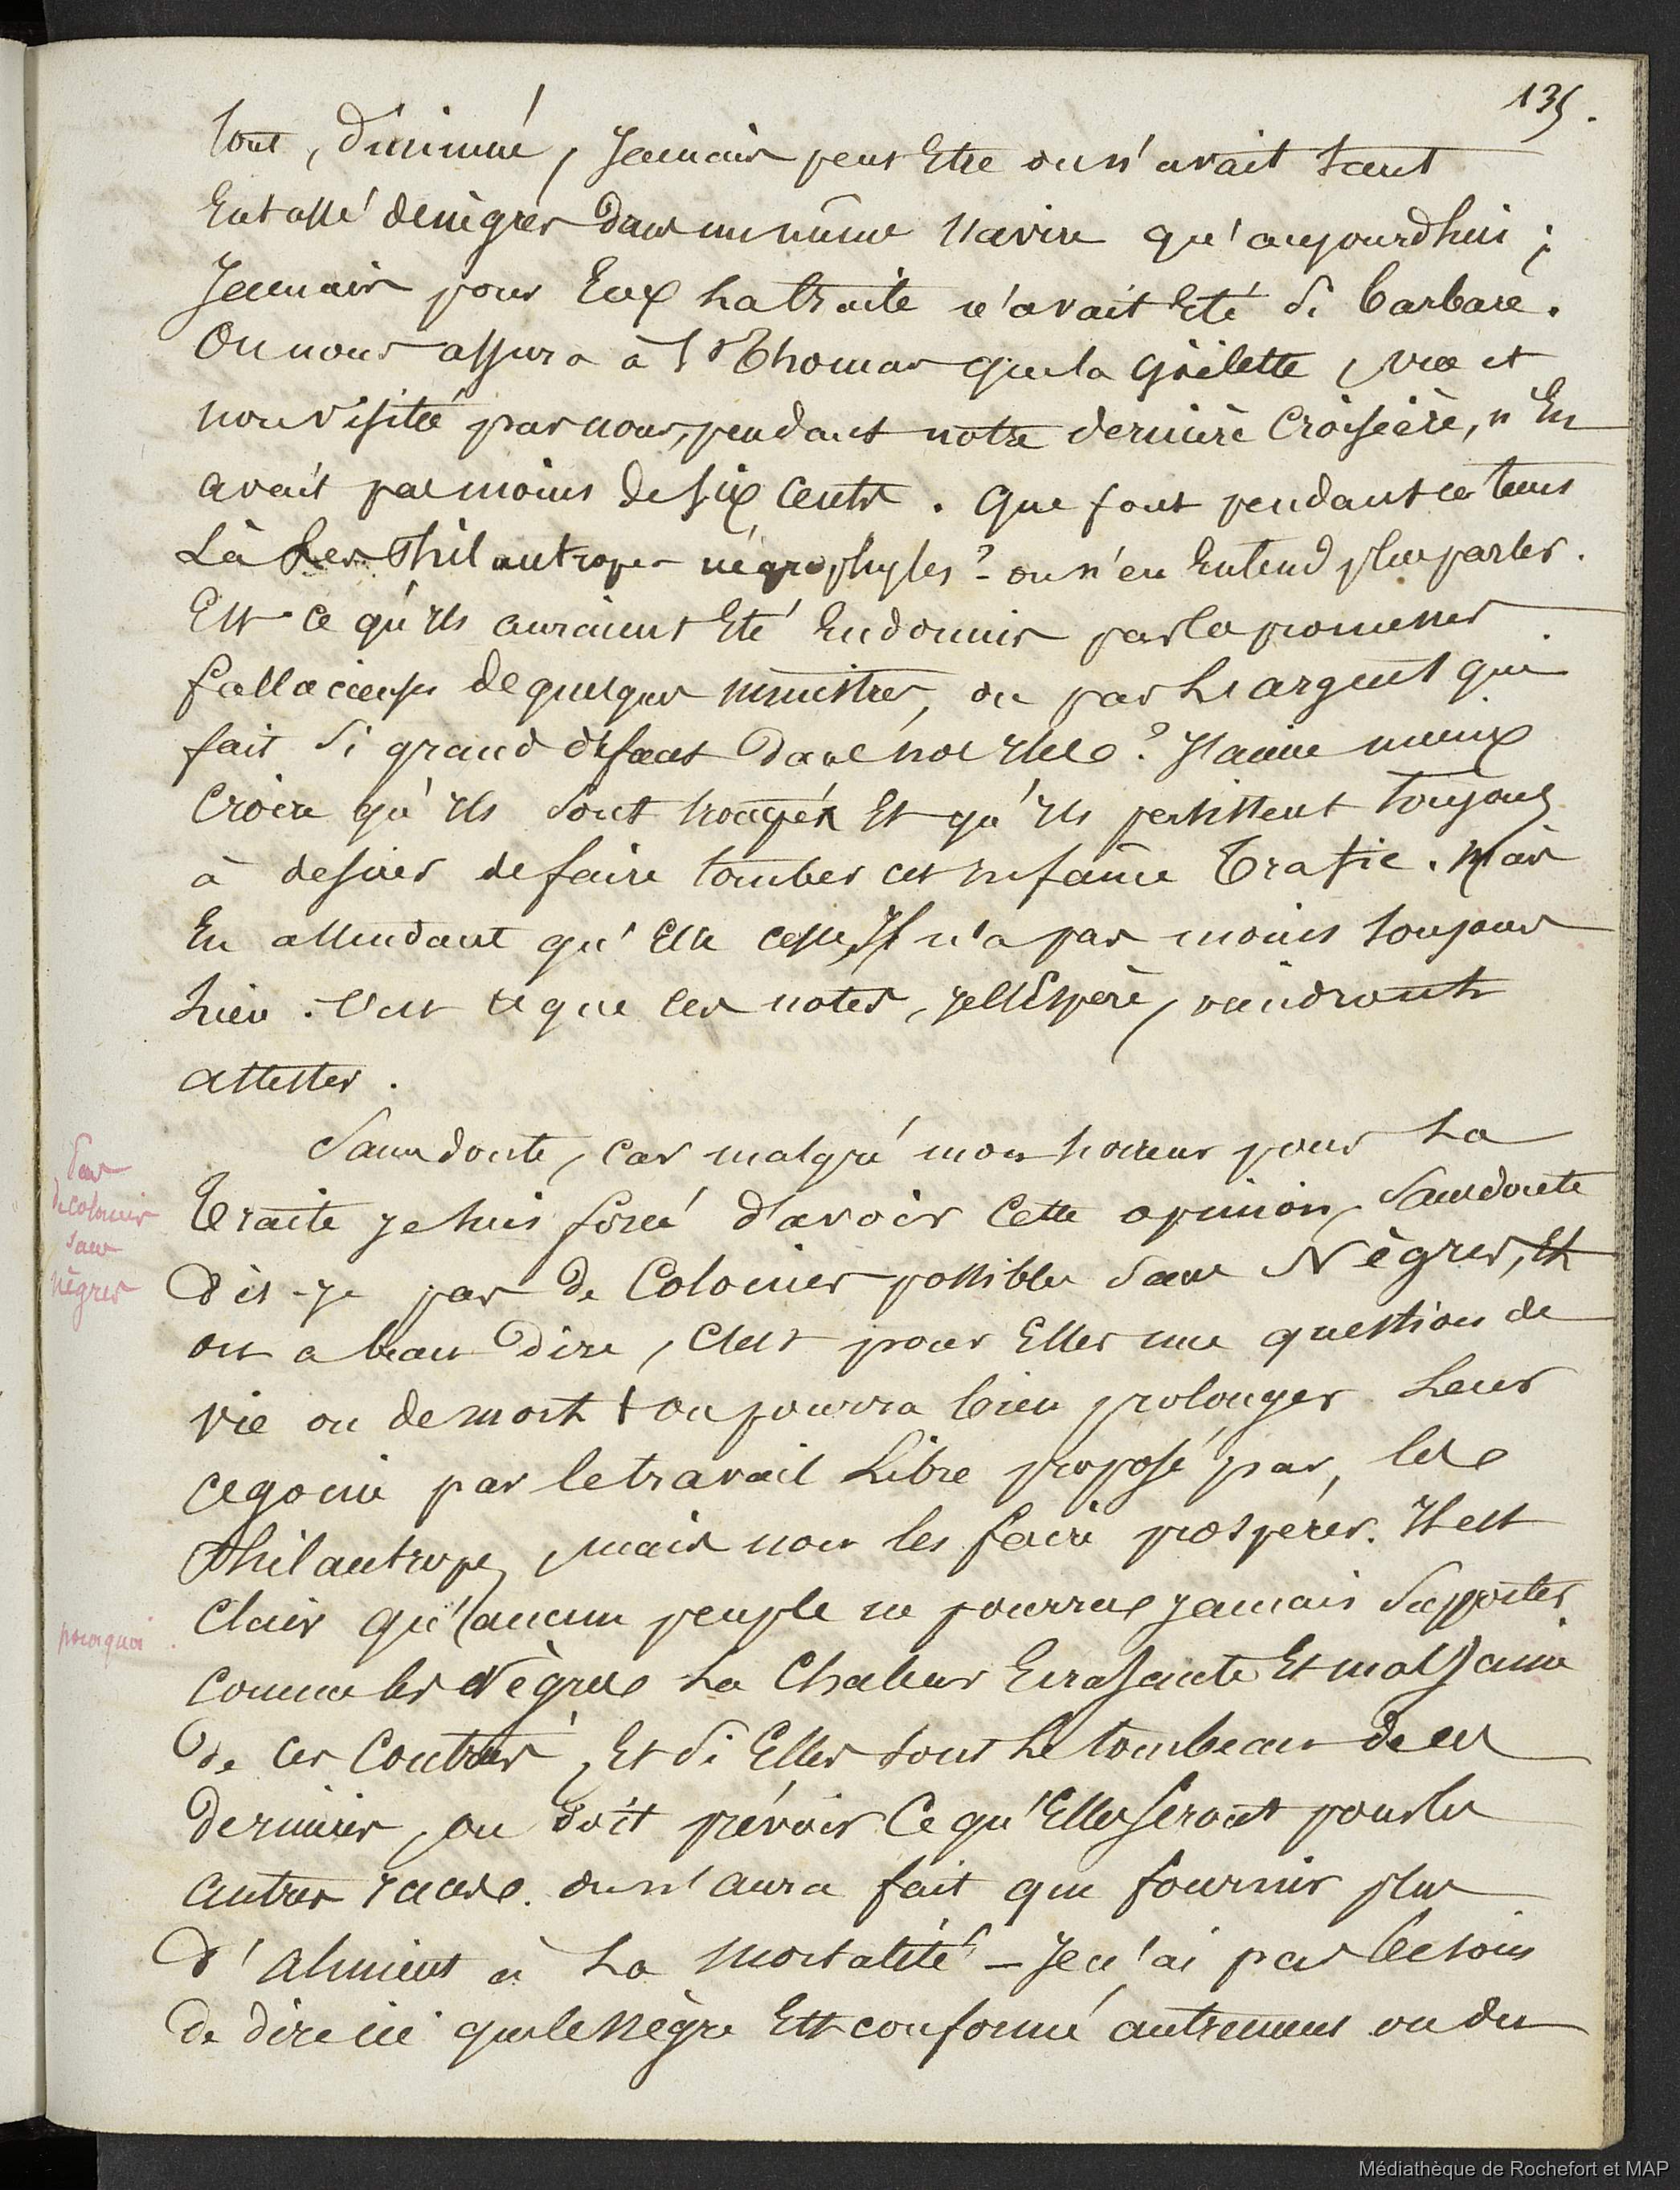 135.
tout, diminué, Jamais peut Etre on n'avait tant
Entassé de nègres Dans un même Navire qu'aujourdhui ;
Jamais pour Eux La traite n'avait Eté si barbare.
On nous assura à St Thomas que la Goëlette, vue et
non visitée par nous, pendant notre dernière Croisière, n'En
avait pas moins de six Cents. Que font pendant ce tems
Là Les Philantropes négrophyles ? - on n'en Entend plus parler.
Est-ce qu'Ils auraient Eté Endormis par la promesses
fallacieuses de quelques ministres, ou par L'argent qui
fait si grand défaut Dans nos Iles ? J'aime mieux
Croire qu'Ils sont trompés Et qu'Ils persistent toujours
à desirer de faire tomber cet Infâme Trafic. Mais
En attendant qu'Elle cesse, Il n'a pas moins toujours
lieu. C'est ce que ces notes, je L'Espère, viendront
attester.
Sans doute, car malgré mon horreur pour La
Traite je suis forcé d'avoir Cette opinion, Sans doute
Dis-je pas de Colonies possibles sans Nègres, Et
on a beau Dire, C'est pour Elles une question de
vie ou de mort + on pourra bien prolonger Leur
agonie par le travail Libre proposé par, les
Philantropes, mais non les faire prospérer. Il est
Clair qu'aucun peuple ne pourra jamais Supporter
Comme les Nègres La Chaleur Ecrasante Et malsaine
De Ces Contrées, Et si Elles sont Le tombeau de ces
Derniers, on doit prévoir Ce qu'Elles seront pour les
autres races. on n'aura fait que fournir plus
D'aliment à La Mortalité - Je n'ai pas besoin
De dire ici que le Nègre Est conformé autrement ou du
Pas
de colonies
sans
nègres
pourquoi
Médiathèque de Rochefort et MAP